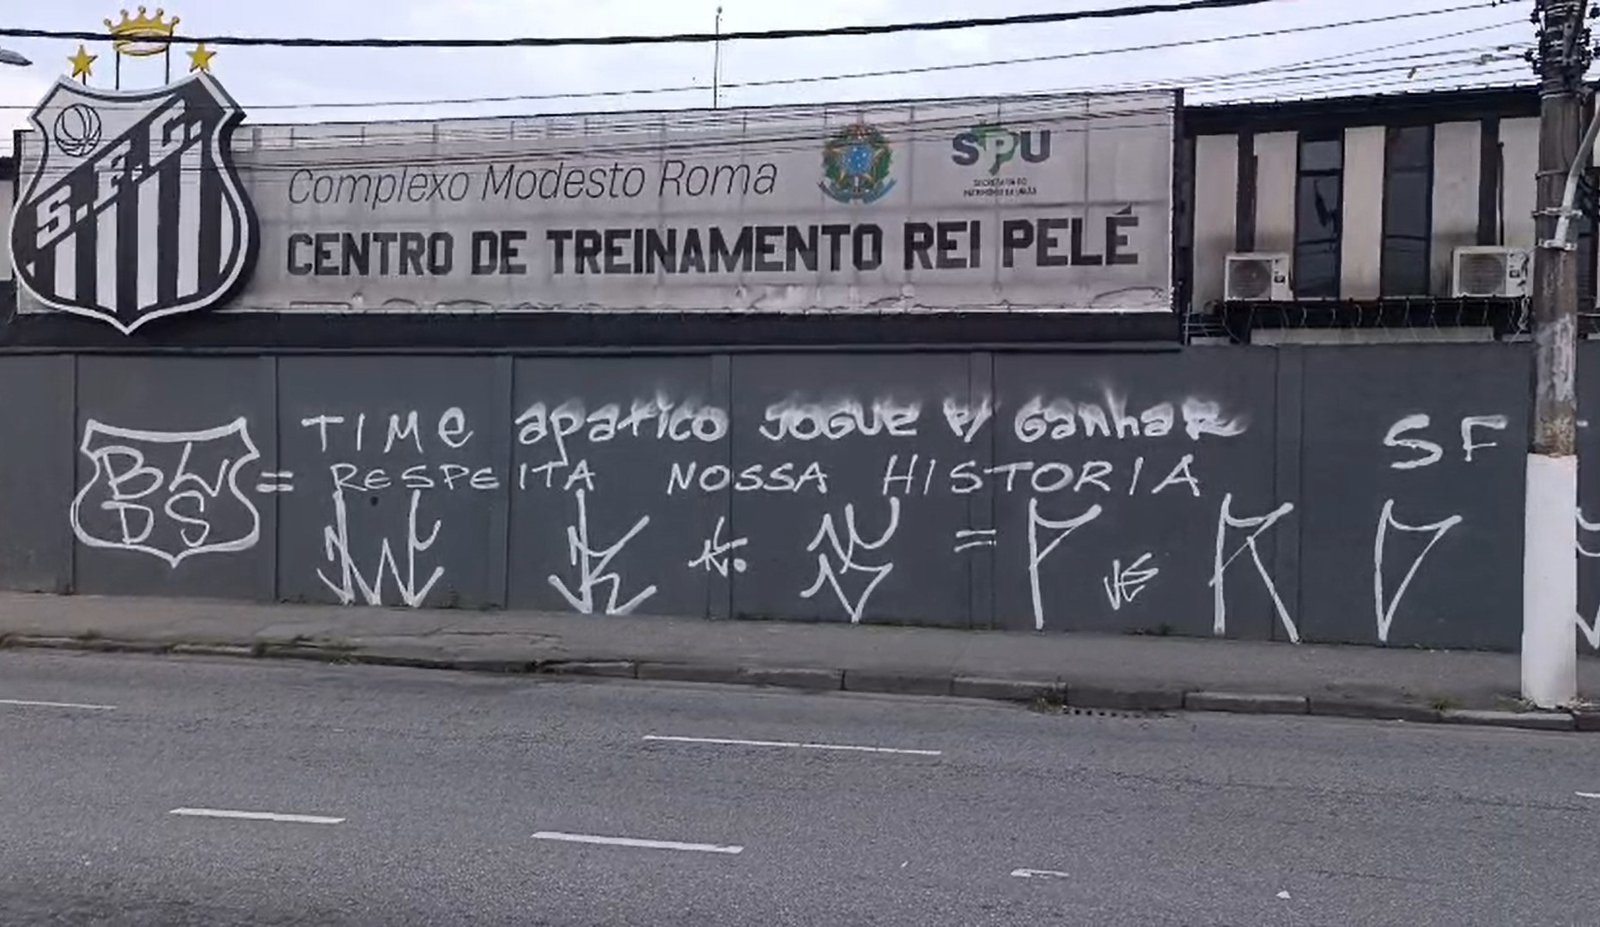 S.F.C.
Complexo Modesto Roma
SPU
SECRETARIA DO
PATRIMÔNIO DA UNIÃO
CENTRO DE TREINAMENTO REI PELÉ
TIMe apatico JOGUE P/ Ganhar
= RESPEITA NOSSA HISTORIA
SF
BL
DS